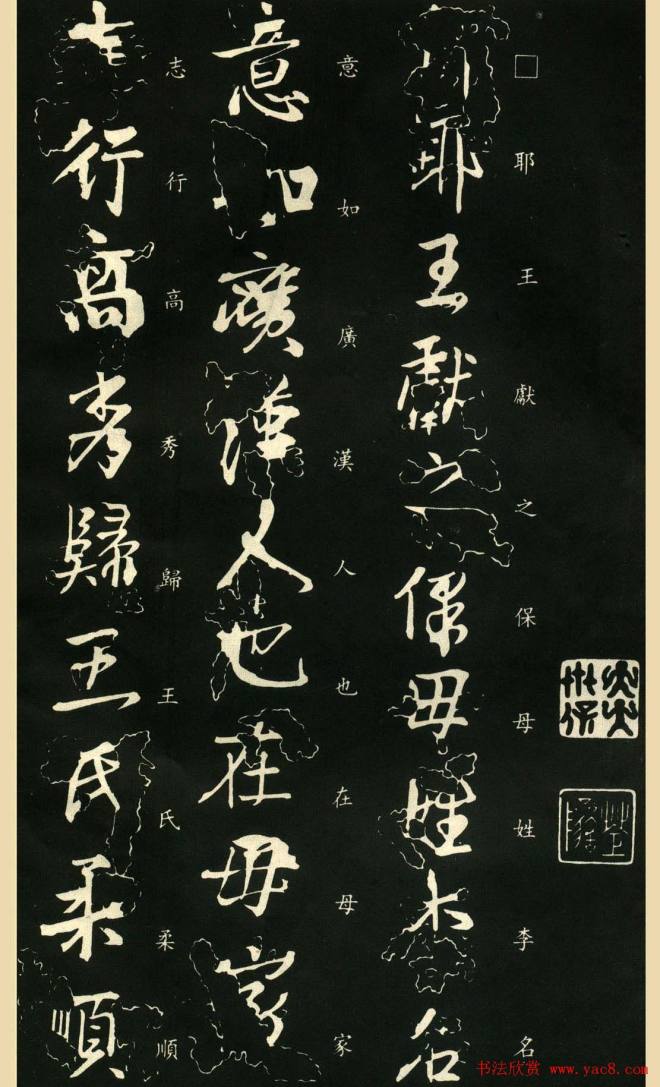 □耶王獻之保母姓李名
意如廣漢人也在母家
志行高秀歸王氏柔順
耶王獻之保母姓李名
意如廣漢人也在母家
志行高秀歸王氏柔順
书法欣赏 www.yac8.com